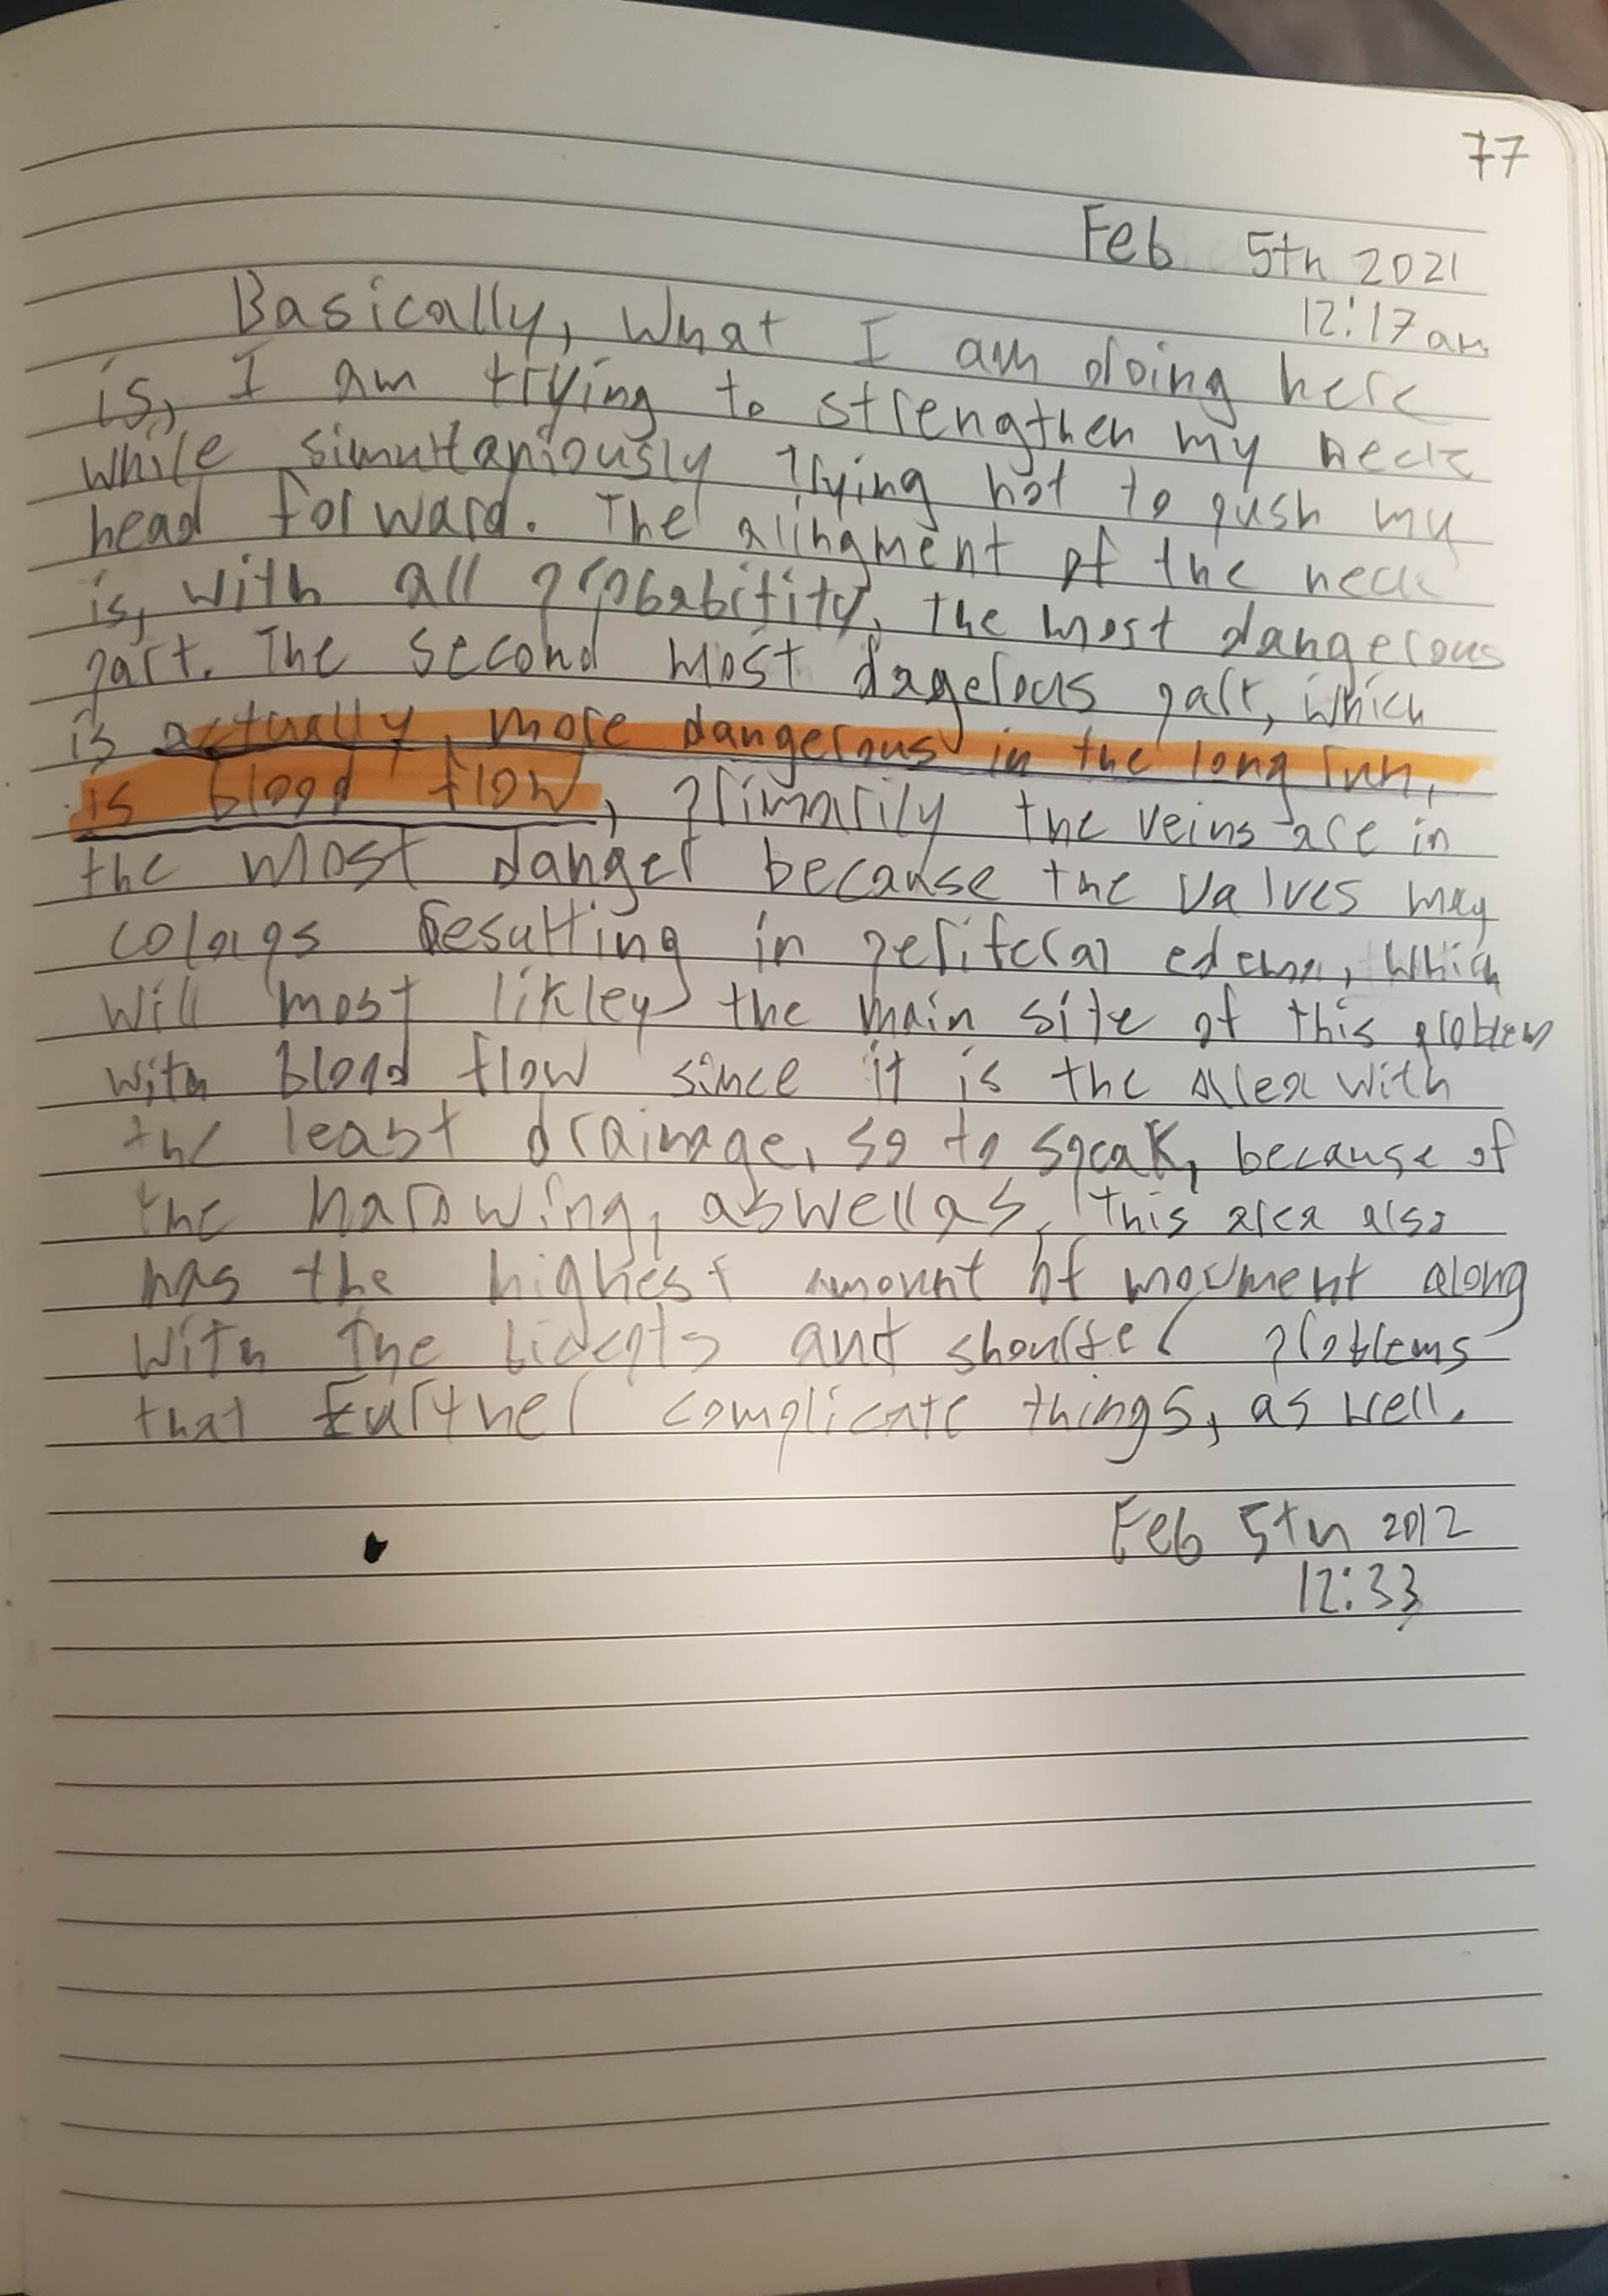 77
Feb 5th 2021
12:17am
Basically, what I am doing here
is, I am trying to strengthen my neck
while simultaniously trying not to push my
head forward. The alingment of the neck
is, with all probability, the most dangerous
part. The second most dagerous part, which
is actually, more dangerous in the long run,
is blood flow, primarily the veins are in
the most danger because the valves may
colaps resulting in periferal edema, which
will most likley the main site of this problem
with blood flow since it is the area with
the least drainage, so to speak, because of
the narowing, aswellas, this area also
has the highest amount of movment along
with the bicepts and shoulder problems
that further complicate things, as well.
Feb 5th 2012
12:33